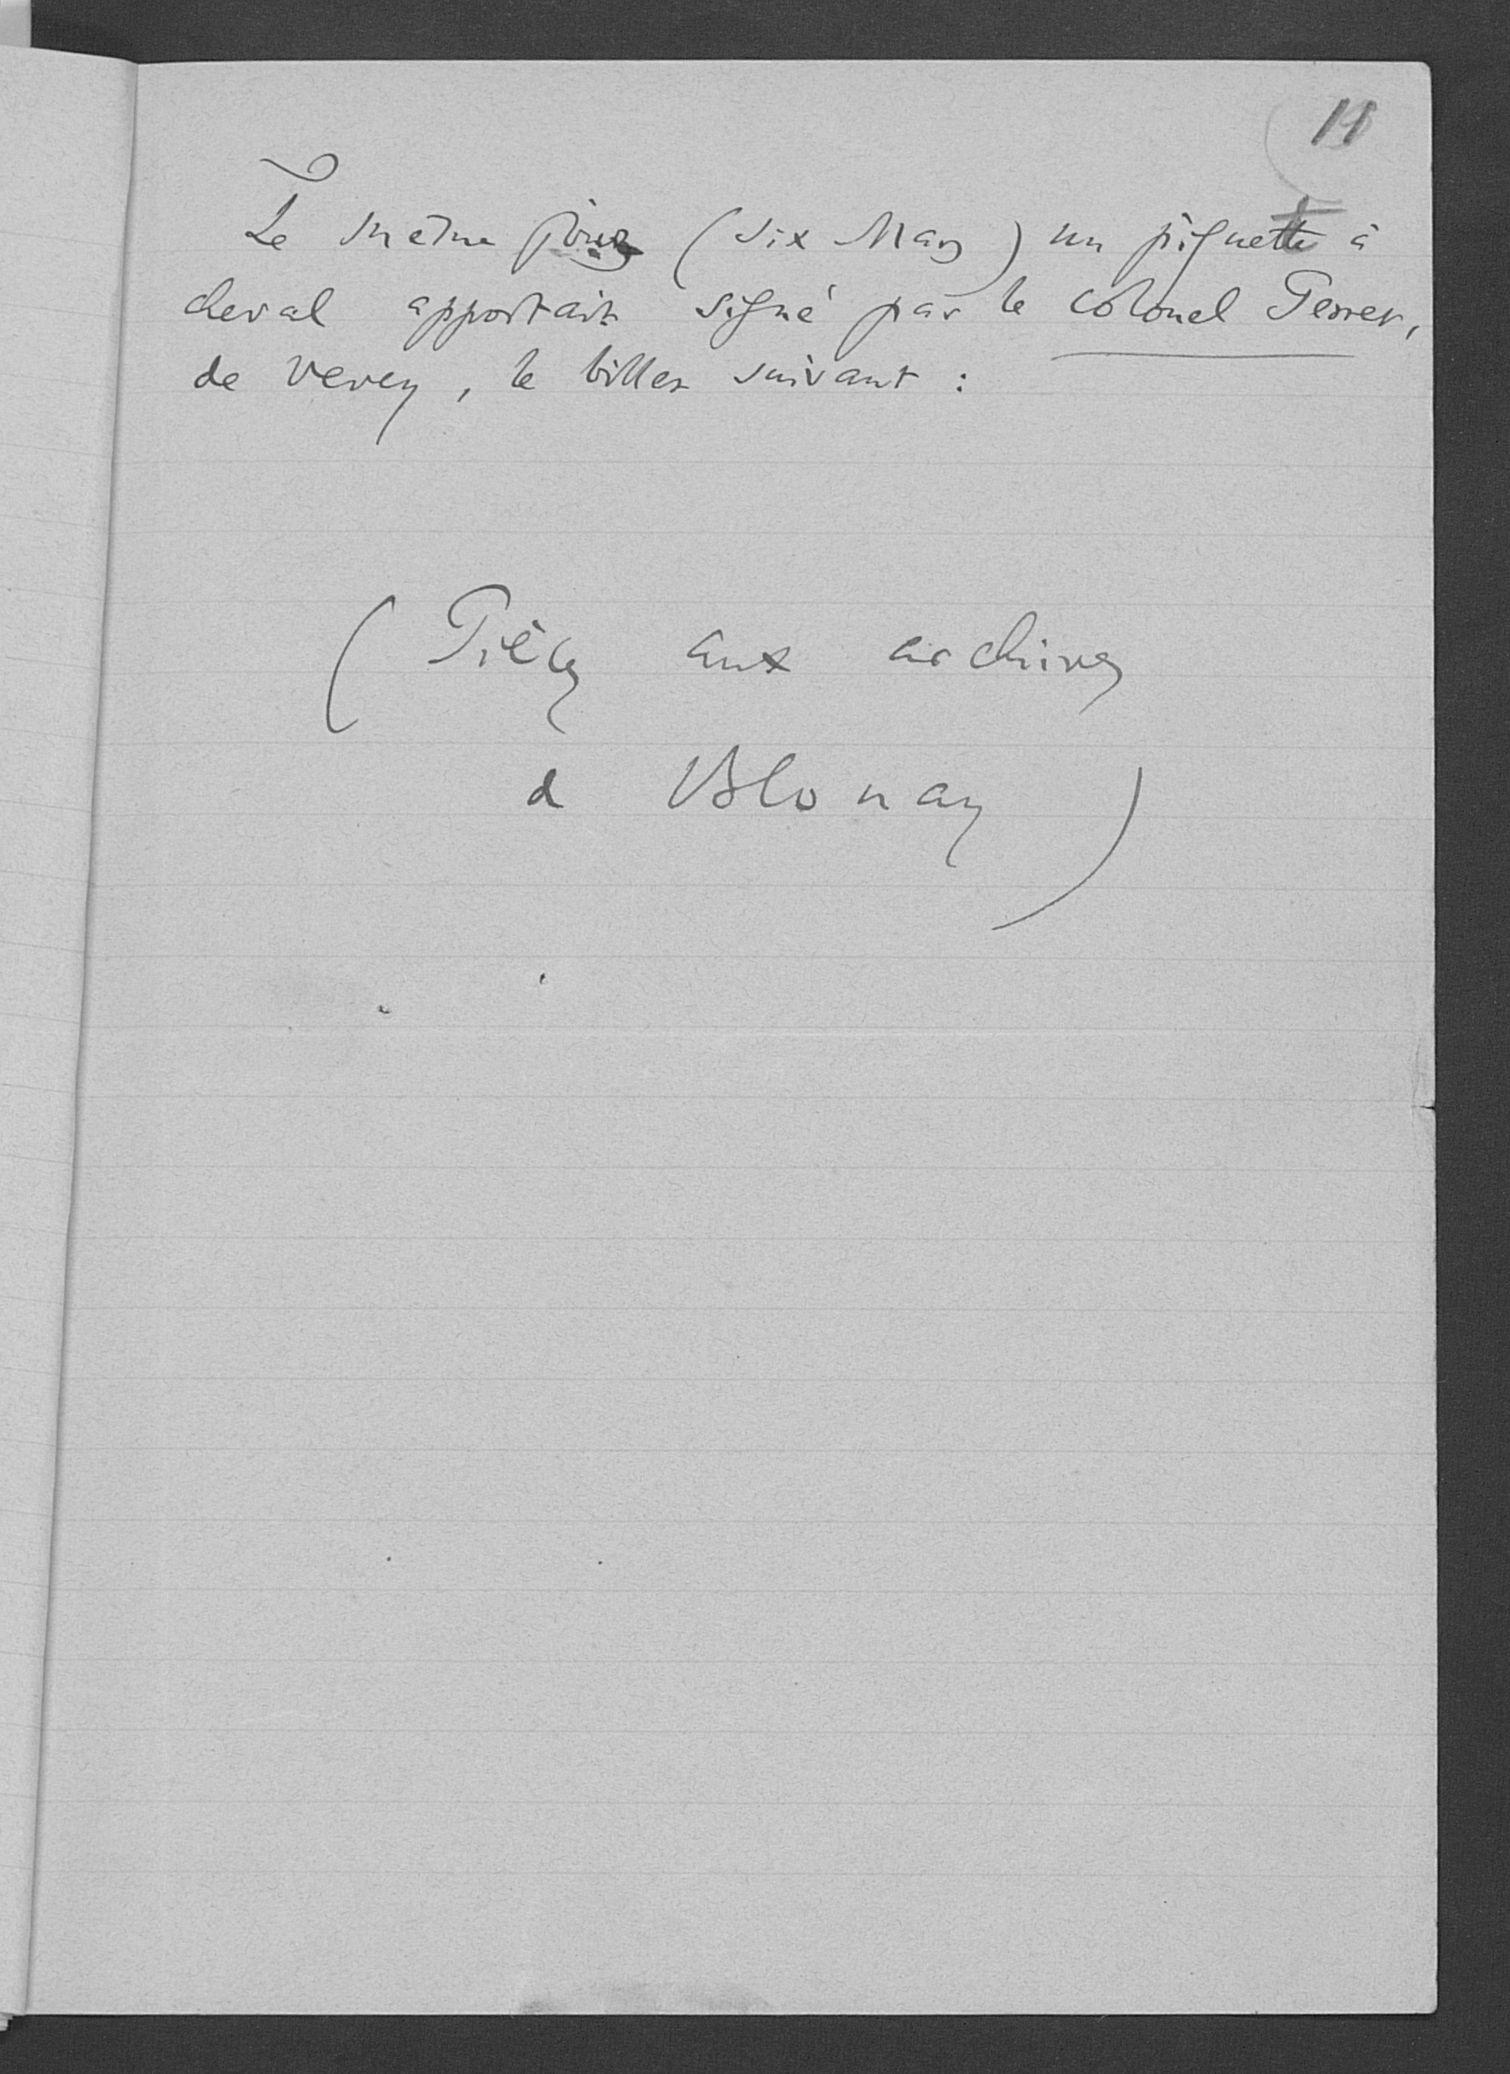 11
Le même jour (six Mars) un piquette à
cheval apportait signé par le colonel Perret,
de Vevey, le billet suivant :
(Pièces aux archives
d Blonay)